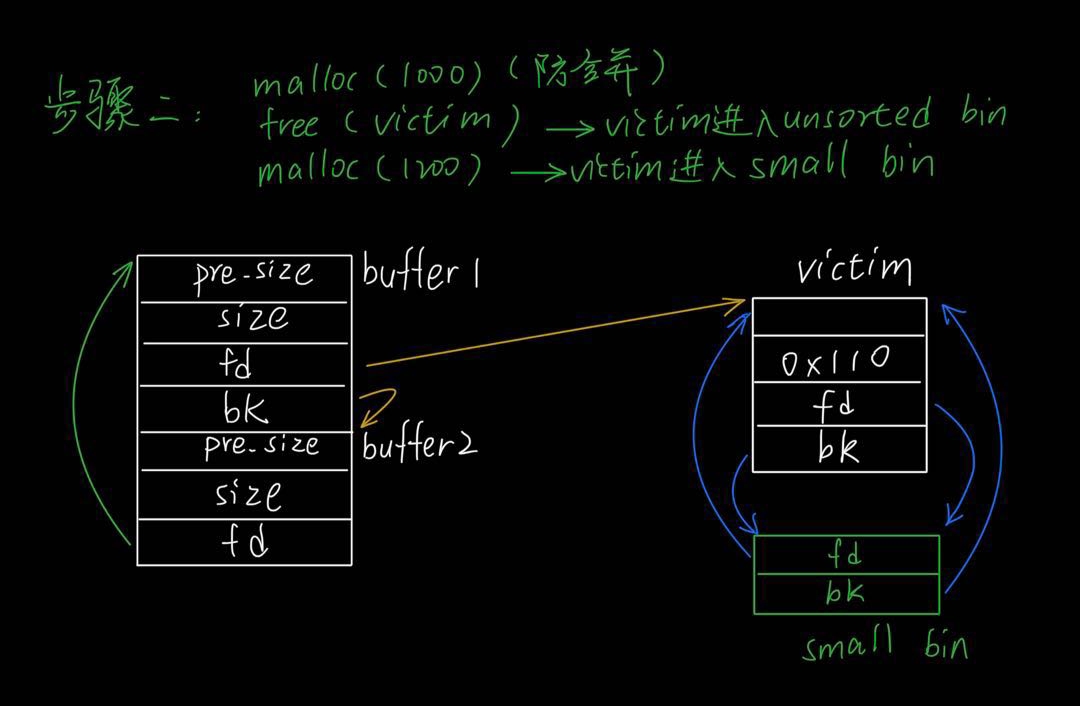 步骤二: malloc(1000)(防合并)
free(victim) → victim进入unsorted bin
malloc(1200) → victim进入small bin
pre-size buffer1
size
fd
bk
pre-size buffer2
size
fd
victim
0x110
fd
bk
fd
bk
small bin